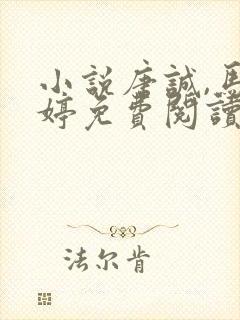 小説唐誠,馬
婷免費閱讀
法尔肯